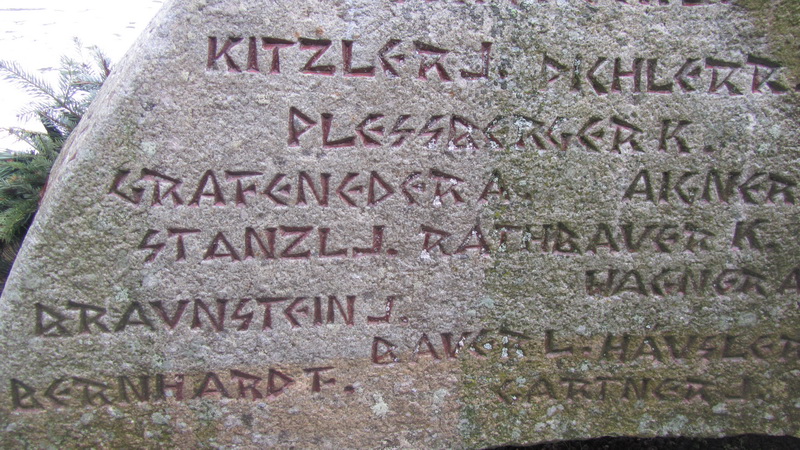 KITZLER J. PICHLER R.
PLESSBERGER K.
GRAFENEDER A. AIGNER
STANZL J. RATHBAUER K.
WAGNER A
BRAUNSTEIN J.
BAUER L. HAUSLER
BERNHARD F. GARTNER J.